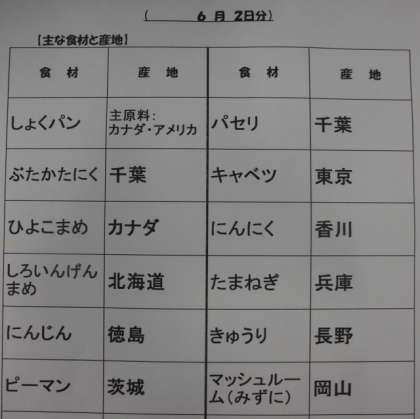 ( 6月 2日分)
【主な食材と産地】
食 材 産 地 食 材 産 地
しょくパン 主原料:
カナダ・アメリカ パセリ 千葉
ぶたかたにく 千葉 キャベツ 東京
ひよこまめ カナダ にんにく 香川
しろいんげん
まめ 北海道 たまねぎ 兵庫
にんじん 徳島 きゅうり 長野
ピーマン 茨城 マッシュルー
ム(みずに) 岡山